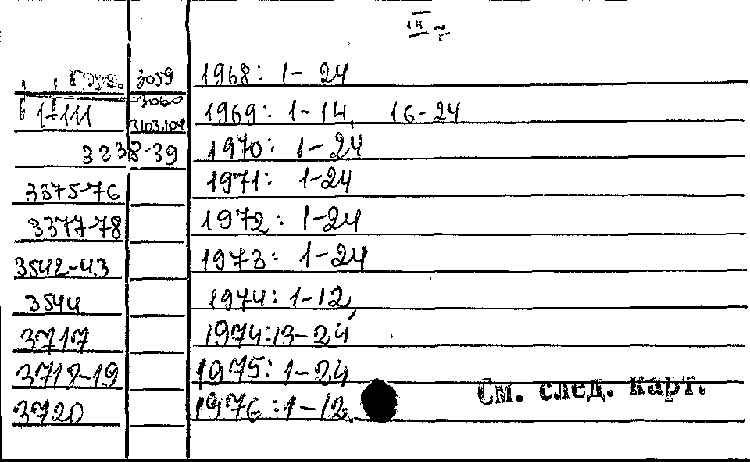 3059 1968: 1-24
3060
1-111 3103.104 1969: 1-14, 16-24
3238-39 1970: 1-24
3375-76 1971: 1-24
3377-78 1972: 1-24
3542-43 1973: 1-24
3544 1974: 1-12,
3717 1974: 13-24
3718-19 1975: 1-24
3720 1976: 1-12, См. след. карт.